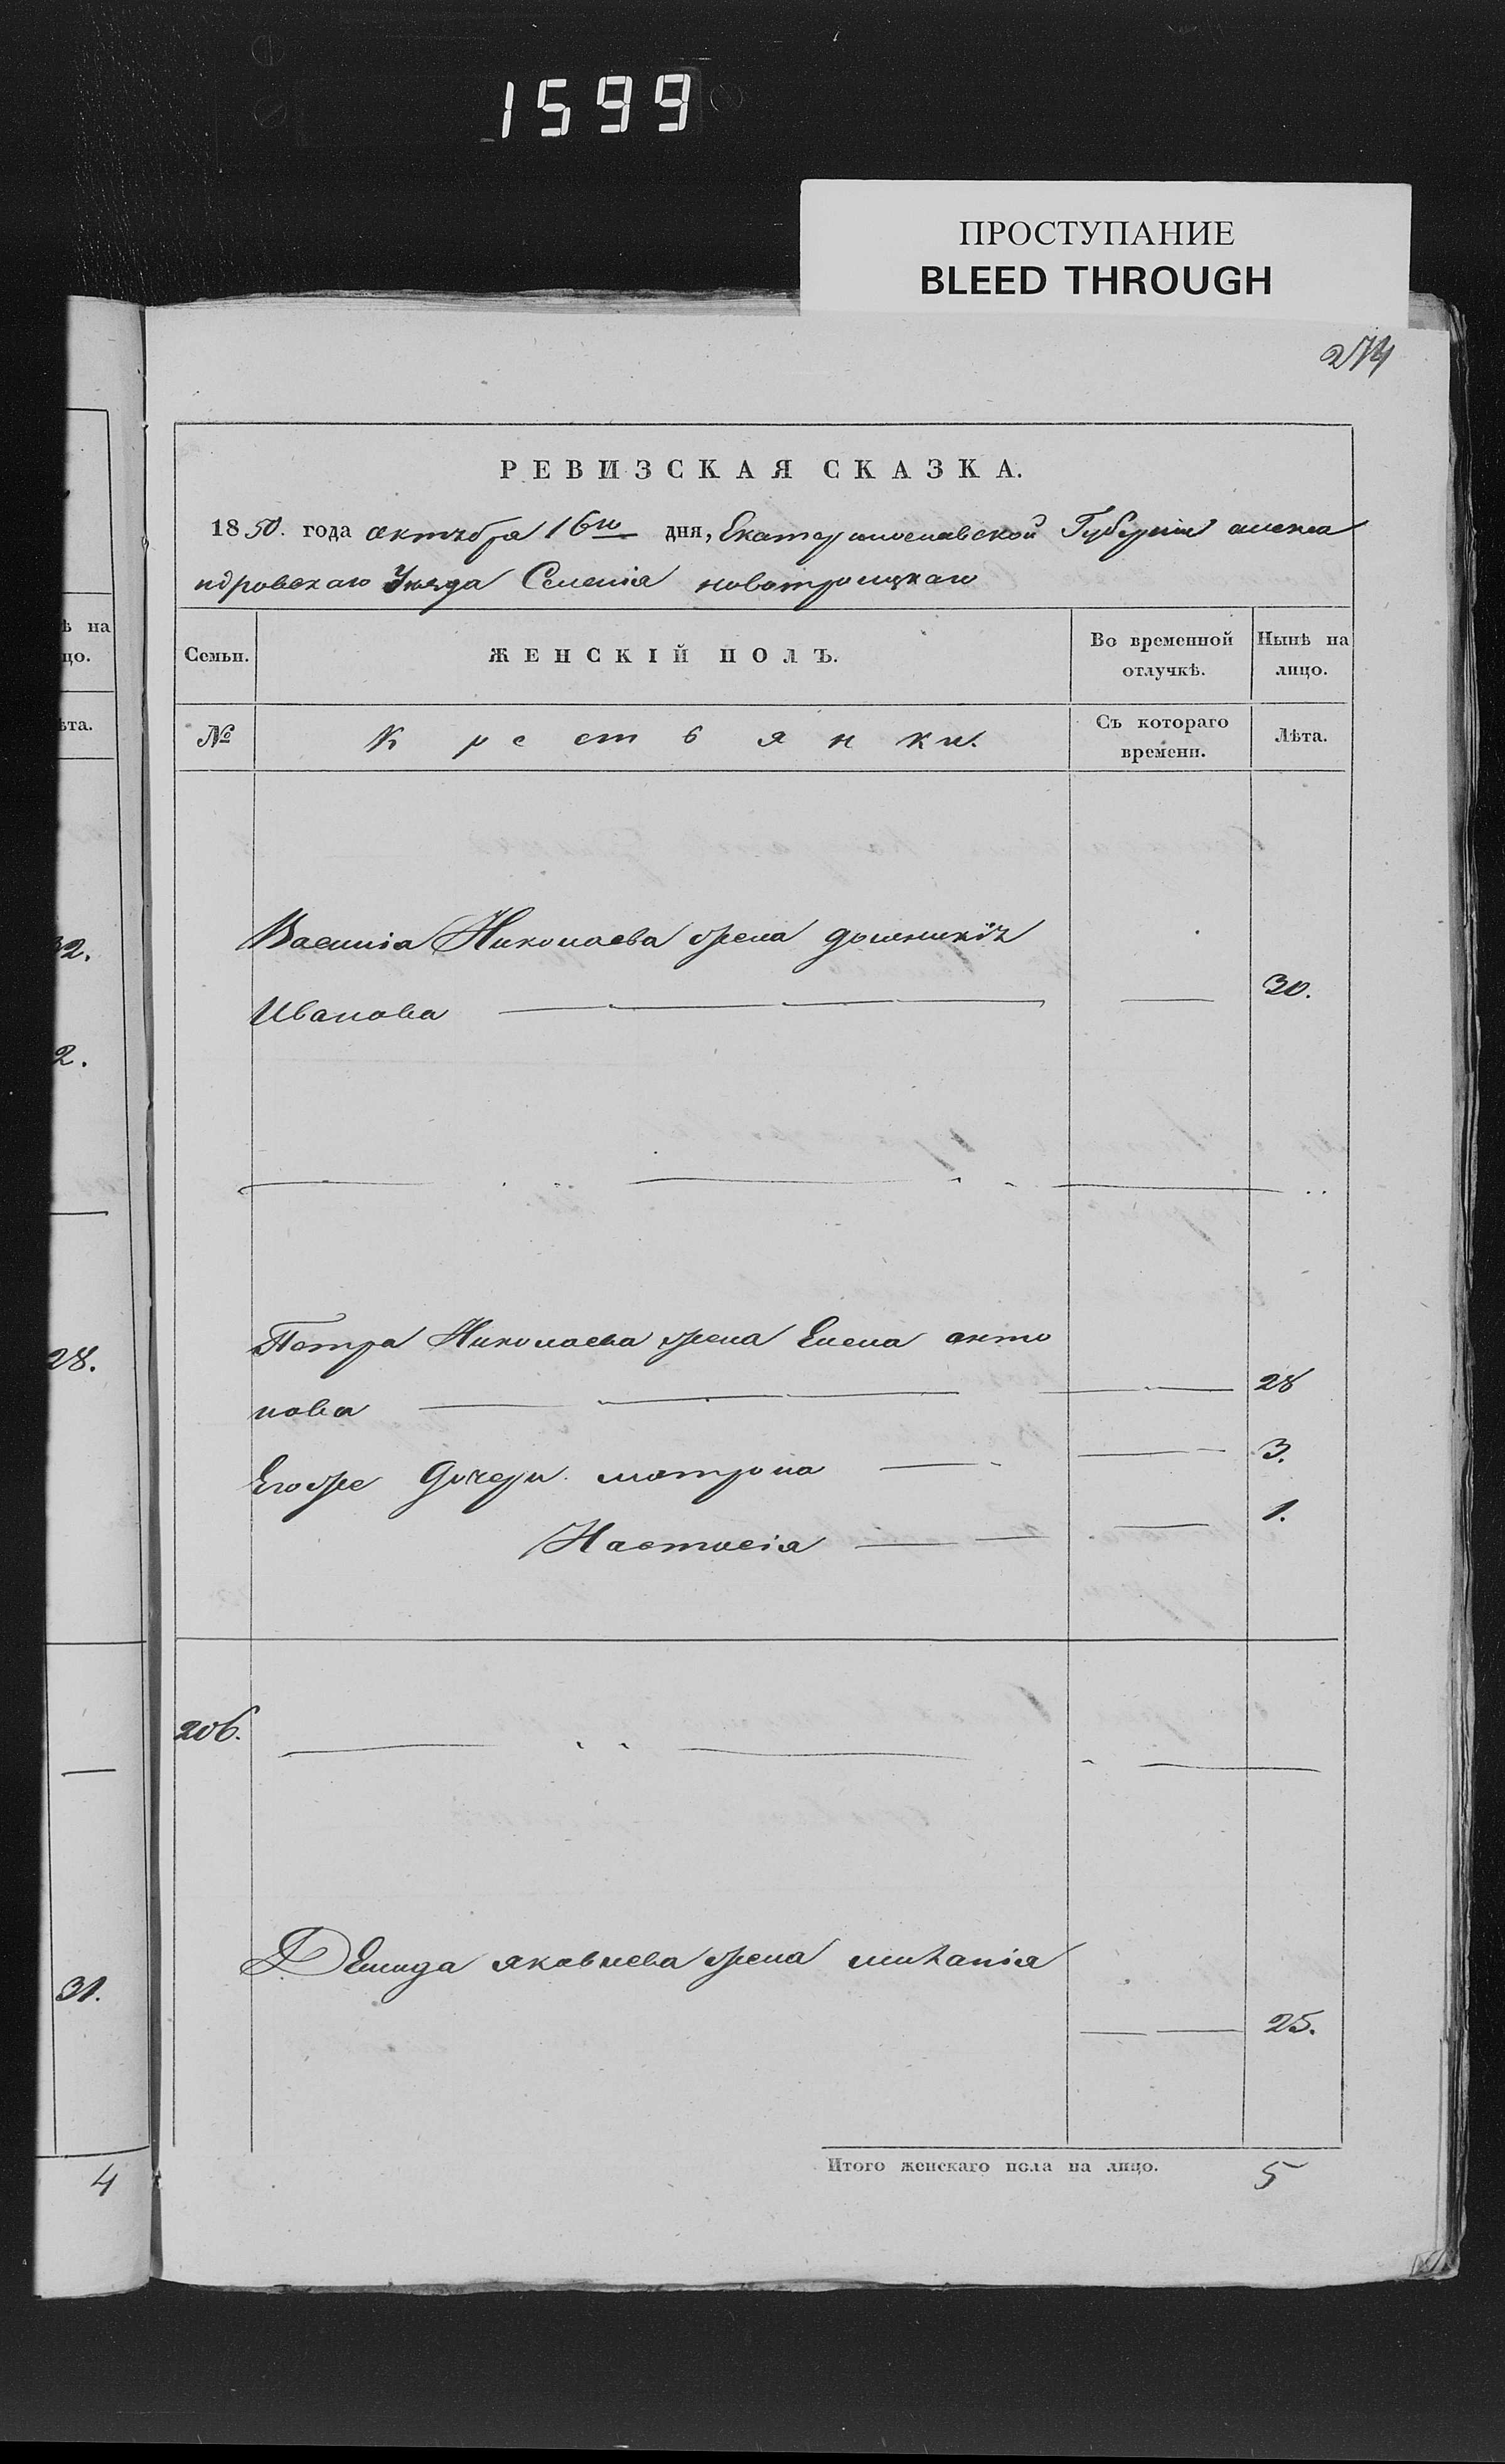 1599
ПРОСТУПАНИЕ
BLEED THROUGH
274
РЕВИЗСКАЯ СКАЗКА.
1850. года октября 16го дня, Екатеринославской Губерніи алекса
ндровскаго Уезда Селенія новотроицкаго
ѣ на
цо.
Семьи.
ЖЕНСКІЙ ПОЛЪ.
Во временной отлучкѣ.
Нынѣ на лицо.
ѣта.
№
Крестьянки.
Съ котораго времени.
Лѣта.
Василіа Николаева жена
32.
Иванова
30.
2.
Петра Николаева жена Елена анто
28.
нова
28
Егоже Дочери матрона
3.
Настасія
1.
206.
Демида яковлева жена
31.
25.
Итого женскаго пола на лицо.
5
4